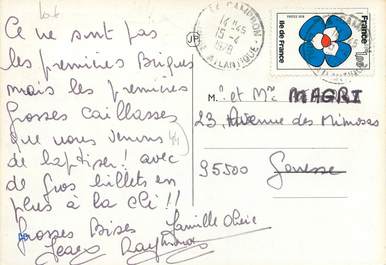 Ce ne sont pas
les premières Briques
mais les premières
grosses caillasses
que nous venons
de baptiser! avec
de gros billets en
plus à la clé!!
Grosses Bises famille
Jean Raymond
14H45
15-4
1978
ATLANTIQUE
JP
France
1,00
Ile de France
M. et Mme MAGRI
23, Avenue des Mimosas
95500 Gonesse